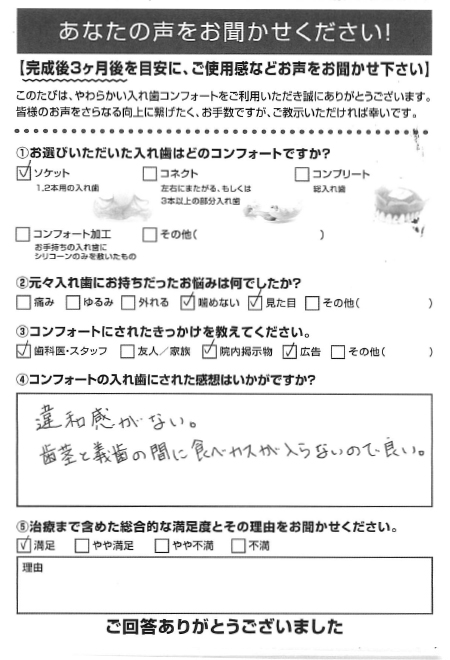 あなたの声をお聞かせください!
【完成後3ヶ月後を目安に、ご使用感などお声をお聞かせ下さい】
このたびは、やわらかい入れ歯コンフォートをご利用いただき誠にありがとうございます。
皆様のお声をさらなる向上に繋げたく、お手数ですが、ご教示いただければ幸いです。
①お選びいただいた入れ歯はどのコンフォートですか?
☑ソケット □コネクト □コンプリート
1,2本用の入れ歯 左右にまたがる、もしくは 総入れ歯
3本以上の部分入れ歯
□コンフォート加工 □その他( )
お手持ちの入れ歯に
シリコーンのみを敷いたもの
②元々入れ歯にお持ちだったお悩みは何でしたか?
□痛み □ゆるみ □外れる ☑噛めない ☑見た目 □その他( )
③コンフォートにされたきっかけを教えてください。
☑歯科医・スタッフ □友人/家族 ☑院内掲示物 ☑広告 □その他( )
④コンフォートの入れ歯にされた感想はいかがですか?
違和感がない。
歯茎と義歯の間に食べカスが入らないので良い。
⑤治療まで含めた総合的な満足度とその理由をお聞かせください。
☑満足 □やや満足 □やや不満 □不満
理由
ご回答ありがとうございました